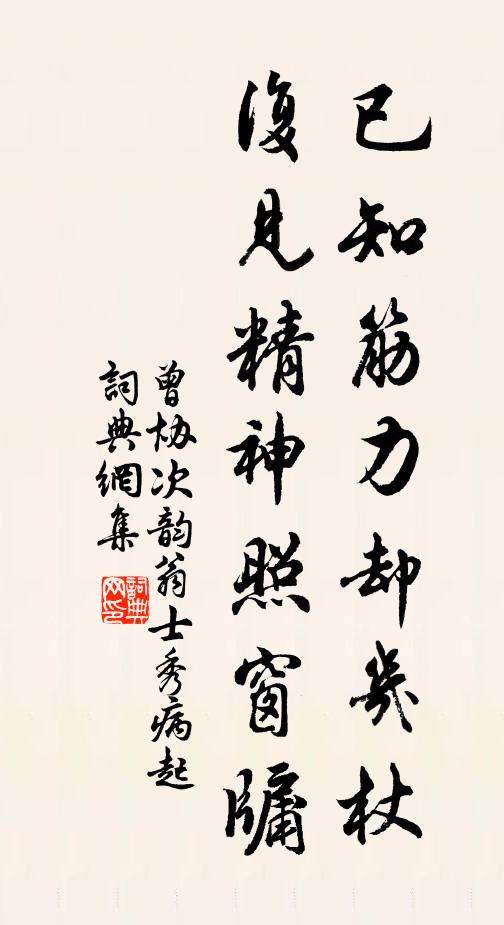 已知筋力却幾杖
復見精神照窗牖
曾协次韵翁士秀病起
詞典網集
詞典网印